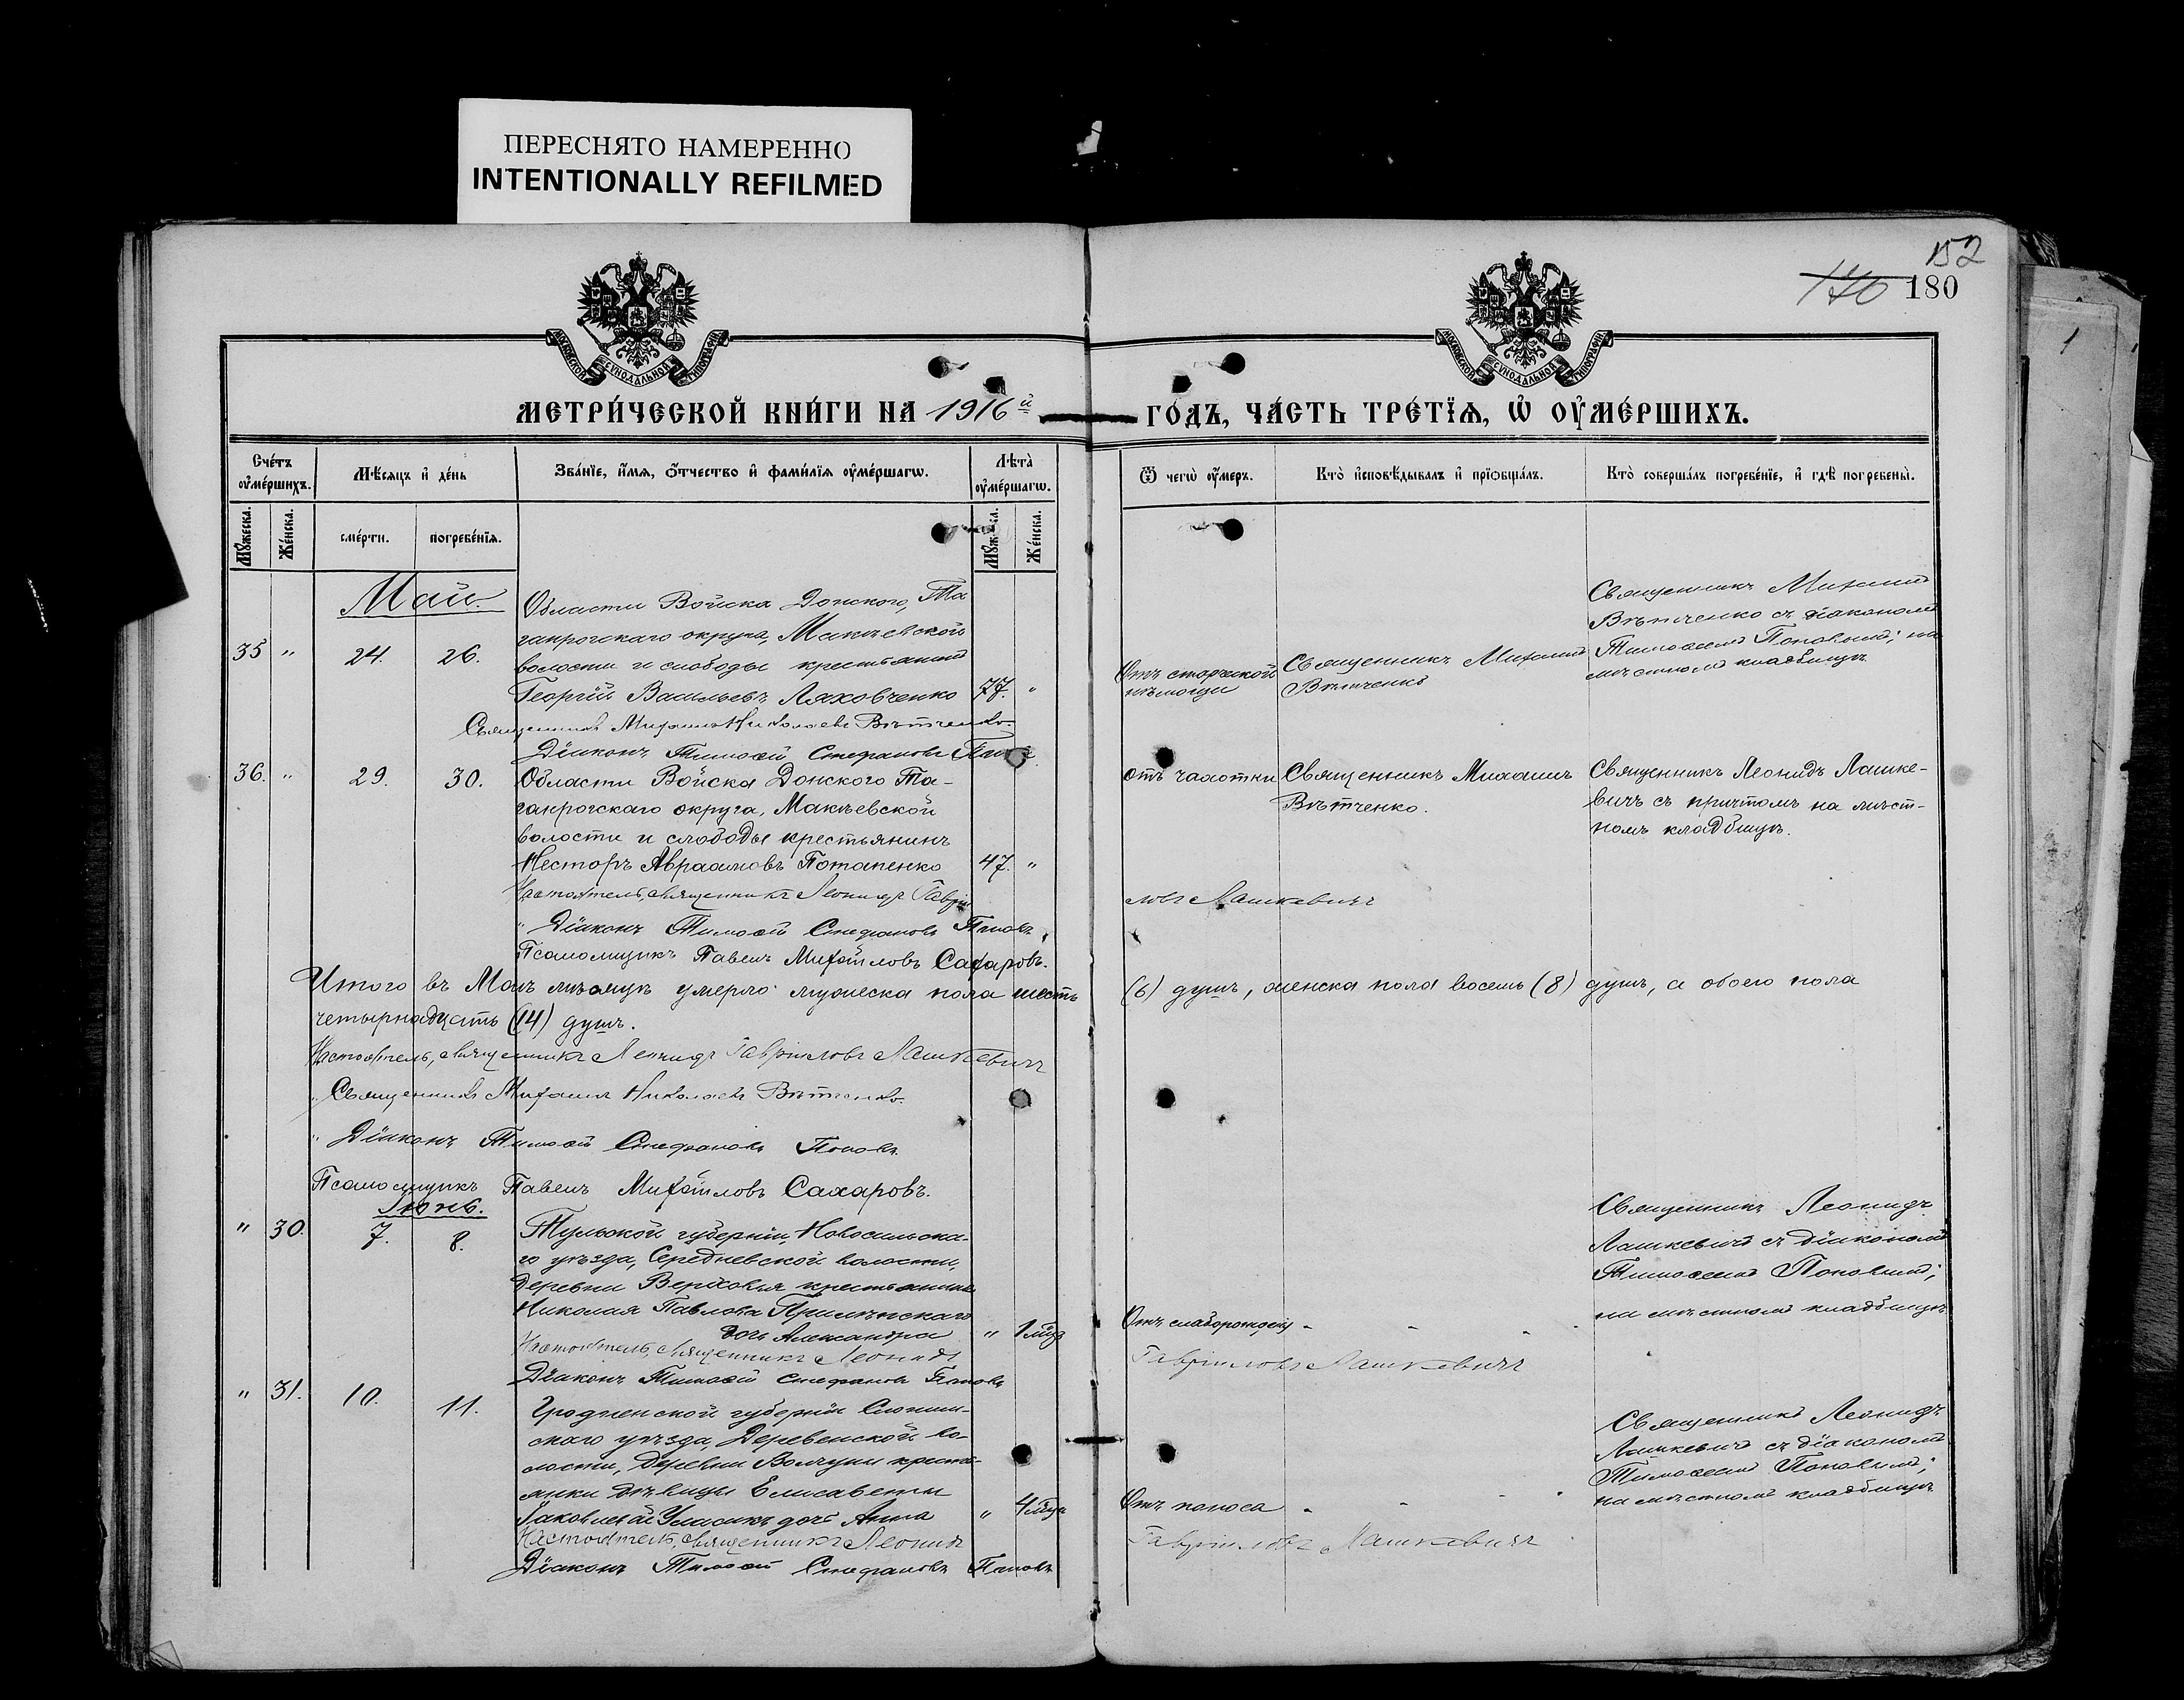 ПЕРЕСНЯТО НАМЕРЕННО
INTENTIONALLY REFILMED
152
180
МОСКОВСКОЙ СѴНОДАЛЬНОЙ ТИПОГРАФІИ
МОСКОВСКОЙ СѴНОДАЛЬНОЙ ТИПОГРАФІИ
МЕТРИ́ЧЕСКОЙ КНИ́ГИ НА 1916й
ГОДЪ, ЧА́СТЬ ТРЕ́ТІѦ, Ѡ҆ ОУ҆МЕ́РШИХЪ.
Сче́тъ оу҆ме́ршихъ.
Мѣ́сѧцъ и҆ де́нь
Зва́нїе, и҆́мѧ, ѻ҆́тчество и҆ фами́лїѧ оу҆ме́ршагѡ.
Лѣ́та оу҆ме́ршагѡ.
Ѿ чегѡ̀ оу҆́меръ.
Кто̀ и҆сповѣ́дывалъ и҆ прїѻбща́лъ.
Кто̀ соверша́лъ погребе́нїе, и҆ гдѣ̀ погребены̀.
Мꙋ́жеска.
Же́нска.
сме́рти.
погребе́нїѧ.
Мꙋ́жеска.
Же́нска.
Май.
35 " 24. 26.
Области Войска Донского, Та
ганрогскаго округа, Макѣевской
волости и слободы крестьянинъ
Георгій Васильевъ Ляховченко 77. "
Отъ старческой
немощи
Священникъ Михаилъ
Вѣтченко
Священникъ Михаилъ
Вѣтченко съ діакономъ
Тимоѳеемъ Поповымъ; на
мѣстномъ кладбищѣ
Священникъ Михаилъ Николаевъ Вѣтченко.
Діаконъ Тимоѳей Стефановъ Поповъ
36. " 29. 30.
Области Войска Донского Та-
ганрогскаго округа, Макѣевской
волости и слободы крестьянинъ
Несторъ Авраамовъ Потапенко 47. "
отъ чахотки
Священникъ Михаилъ
Вѣтченко.
Священникъ Леонидъ Лашке-
вичъ съ причтомъ на мѣст-
номъ кладбищѣ.
Настоятель, священникъ Леонидъ Гаврі
ловъ Лашкевичъ
" Діаконъ Тимоѳей Стефановъ Поповъ
Псаломщикъ Павелъ Михайловъ Сахаровъ.
Итого въ Маѣ мѣсяцѣ умерло мужеска пола шесть
(6) душъ, женска пола восемь (8) душъ, а обоего пола
четырнадцать (14) душъ.
Настоятель, священникъ Леонидъ Гавріиловъ Лашкевичъ
" Священникъ Михаилъ Николаевъ Вѣтченко.
" Діаконъ Тимоѳей Стефановъ Поповъ
Псаломщикъ Павелъ Михайловъ Сахаровъ.
Іюнь.
" 30. 7. 8.
Тульской губерніи, Новосильска-
го уѣзда, Середневской волости,
деревни Верховья крестьянина
Николая Павлова
дочь Александра " 1 мѣц
Отъ слаборожден
Священникъ Леонидъ
Лашкевичъ съ діакономъ
Тимоѳеемъ Поповымъ;
на мѣстномъ кладбищѣ
Настоятель, священникъ Леонидъ
Гавріиловъ Лашкевичъ
Діаконъ Тимоѳей Стефановъ Поповъ
" 31. 10. 11.
Гродненской губерніи Слоним-
скаго уѣзда, Деревенской во-
лости, деревни Волчуни кресть-
янки дѣвицы Елисаветы
Яковлевой Уласикъ дочь Анна " 4 мѣца
Отъ поноса
Священникъ Леонидъ
Лашкевичъ съ діакономъ
Тимоѳеемъ Поповымъ;
на мѣстномъ кладбищѣ
Настоятель, священникъ Леонидъ
Гавріиловъ Лашкевичъ
Діаконъ Тимоѳей Стефановъ Поповъ